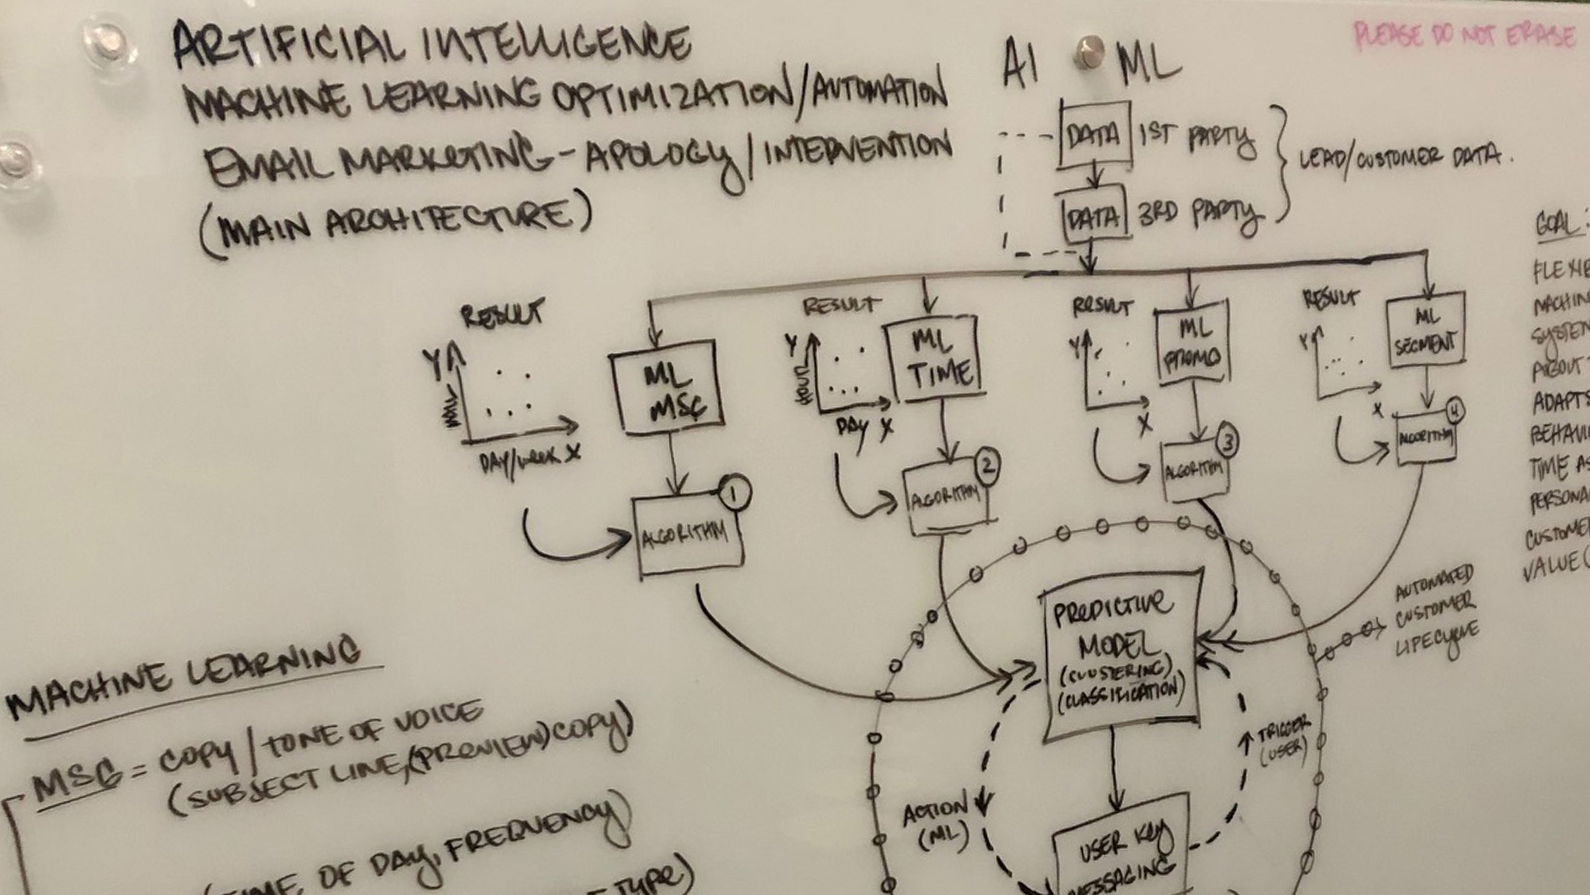 ARTIFICIAL INTELLIGENCE
MACHINE LEARNING OPTIMIZATION/AUTOMATION
EMAIL MARKETING - APOLOGY/INTERVENTION
(MAIN ARCHITECTURE)
PLEASE DO NOT ERASE
AI ML
DATA 1ST PARTY
DATA 3RD PARTY
LEAD/CUSTOMER DATA.
GOAL:
FLEXIB
MACHIN
SYSTEM
ABOUT
ADAPTS
BEHAVI
TIME AS
PERSONA
CUSTOME
VALUE (
RESULT
Y
DAY/WEEK X
ML
MSG
ALGORITHM
1
RESULT
Y
HOUR
DAY X
ML
TIME
ALGORITHM
2
RESULT
Y
X
ML
PROMO
ALGORITHM
3
RESULT
Y
X
ML
SEGMENT
ALGORITHM
4
PREDICTIVE
MODEL
(CLUSTERING)
(CLASSIFICATION)
AUTOMATED
CUSTOMER
LIFECYCLE
TRIGGER
(USER)
ACTION
(ML)
USER KEY
MESSAGING
MACHINE LEARNING
MSG = COPY/TONE OF VOICE
(SUBJECT LINE, (PREVIEW) COPY)
OF DAY, FREQUENCY)
TYPE)